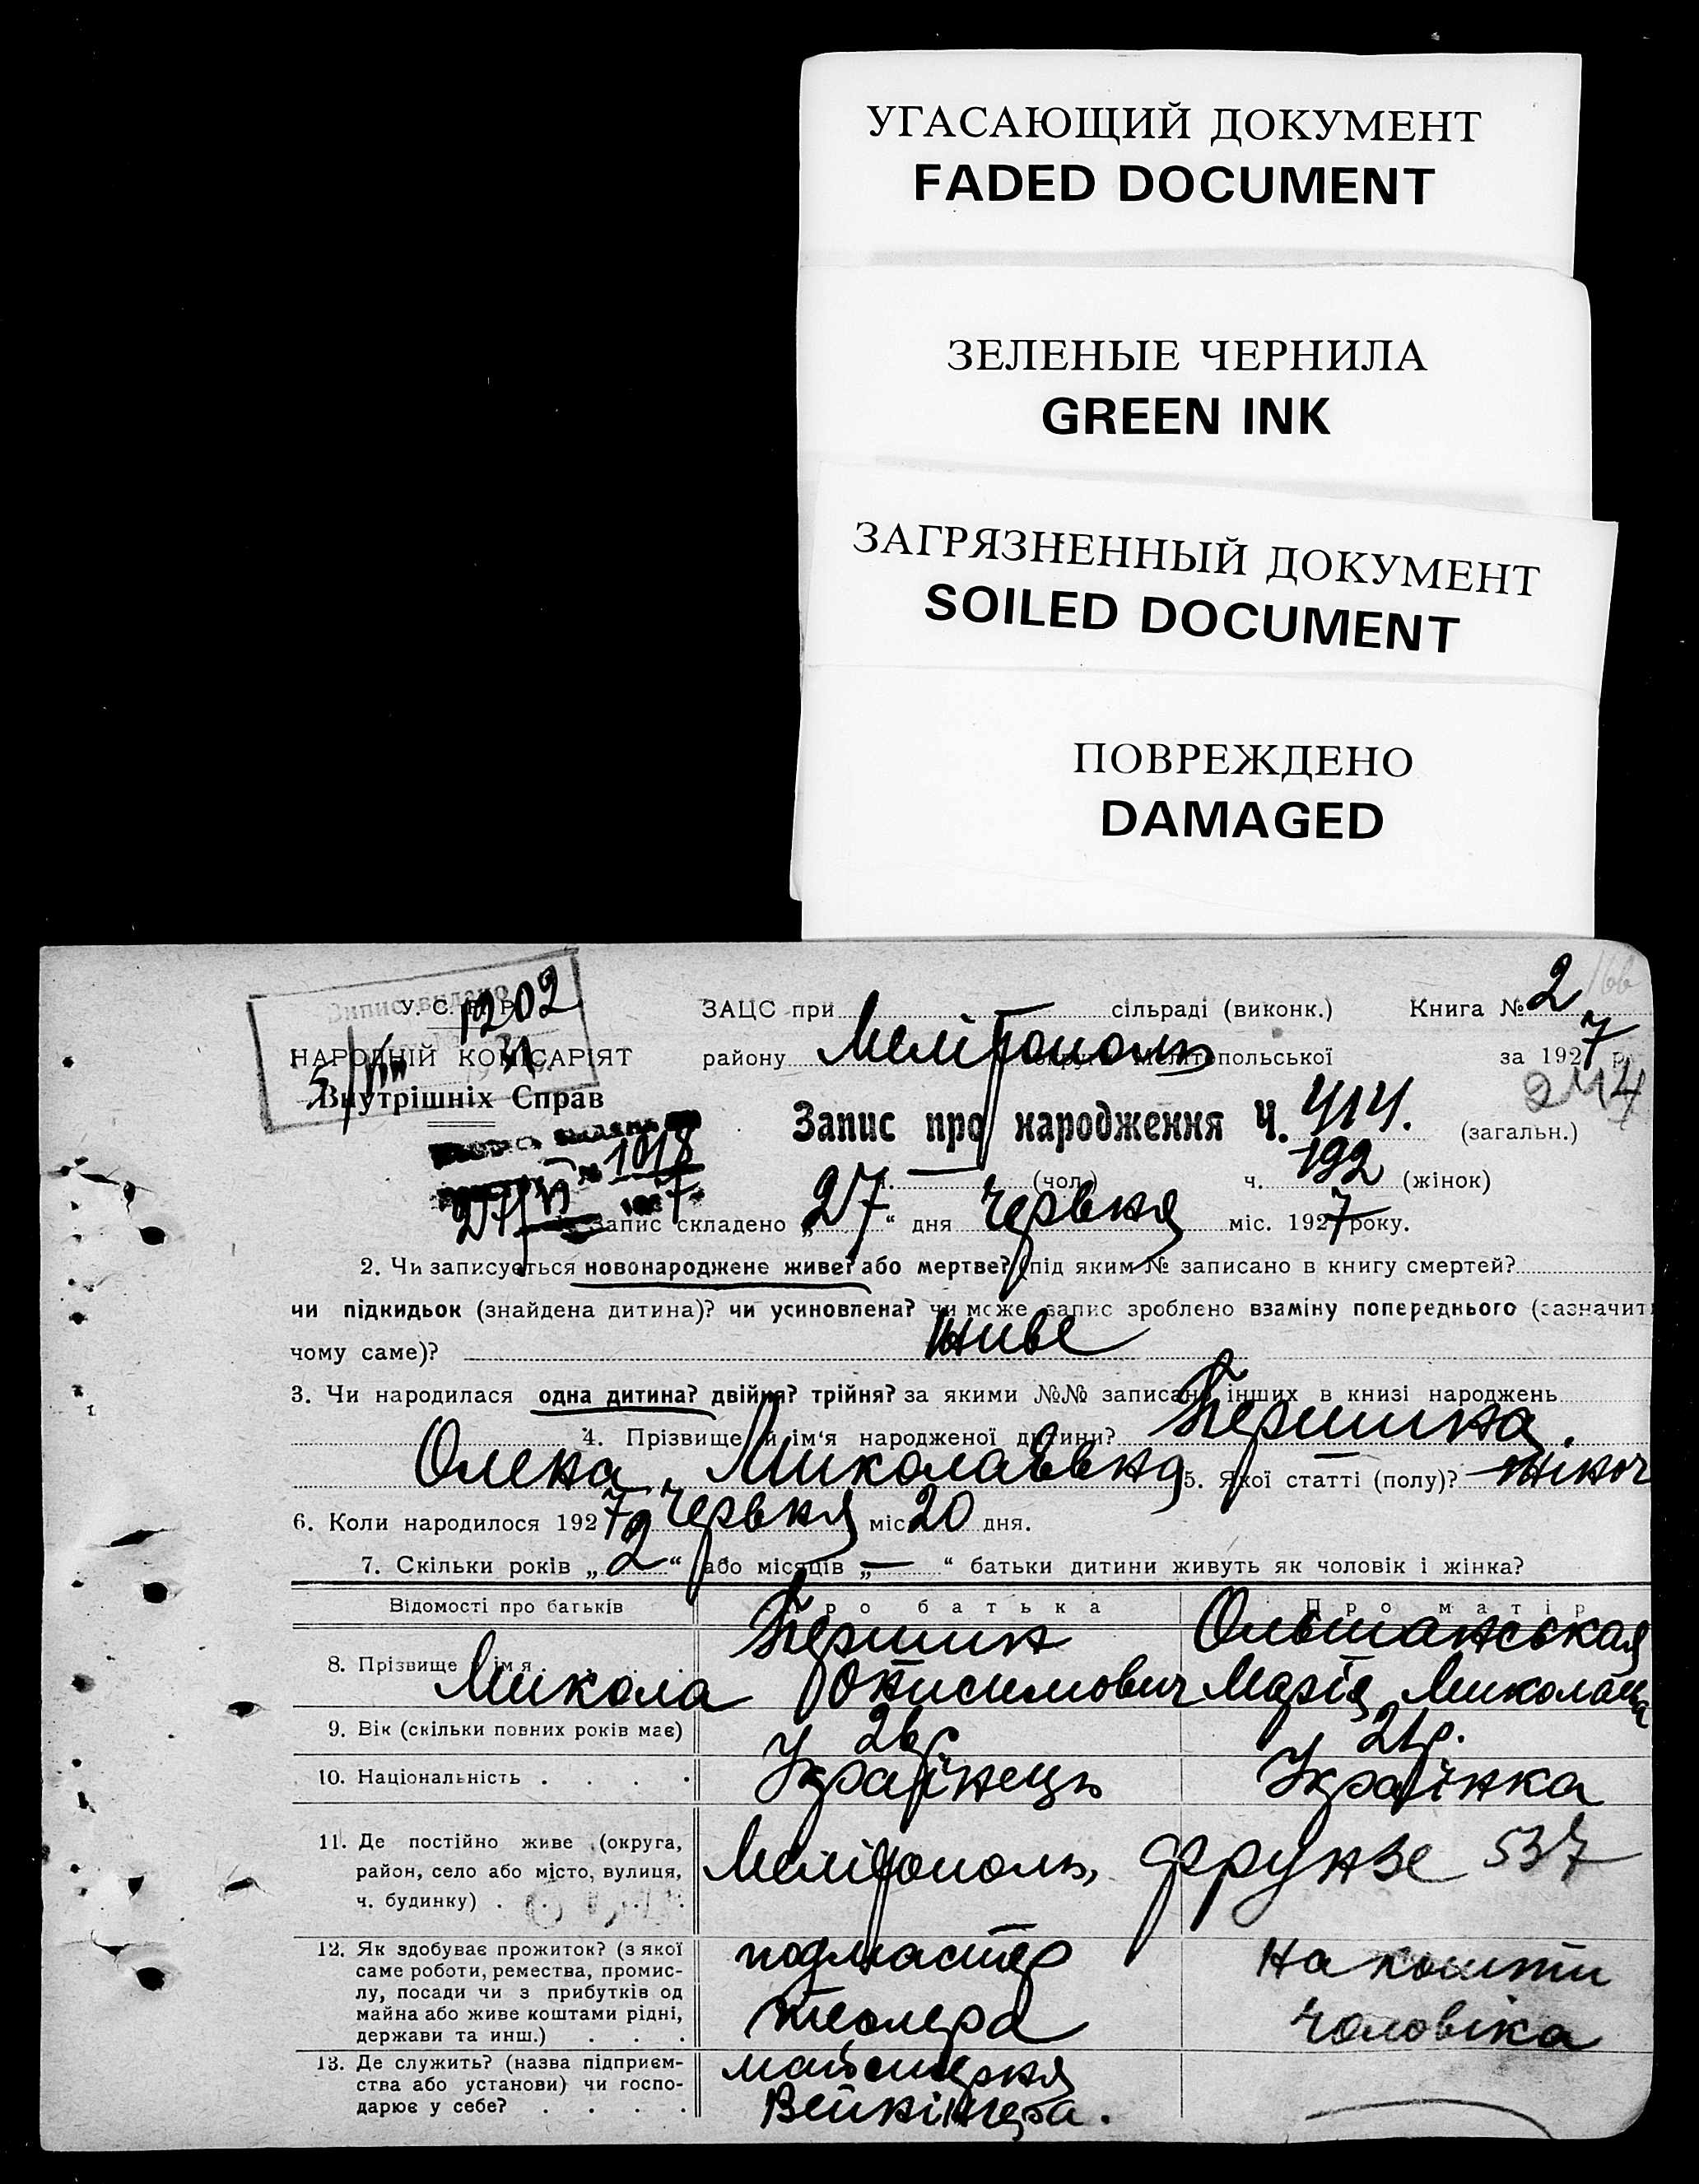 УГАСАЮЩИЙ ДОКУМЕНТ
FADED DOCUMENT
ЗЕЛЕНЫЕ ЧЕРНИЛА
GREEN INK
ЗАГРЯЗНЕННЫЙ ДОКУМЕНТ
SOILED DOCUMENT
ПОВРЕЖДЕНО
DAMAGED
У. С. Р. Р. 1202
НАРОДНІЙ КОМІСАРІЯТ
Внутрішніх Справ
№ 1018
27/VI 1927
ЗАЦС при сільраді (виконк.) Книга № 2
району Мелітополь округи Мелітопольської за 1927 р.
244
Запис про народження Ч. 414. (загальн.)
ч. — (чол.) ч. 192 (жінок)
1. Запис складено „27“ дня червня міс. 1927 року.
2. Чи записується новонароджене живе? або мертве? (під яким № записано в книгу смертей?
чи підкидьок (знайдена дитина)? чи усиновлена? чи може запис зроблено взаміну попереднього (зазначить
чому саме)? живе
3. Чи народилася одна дитина? двійня? трійня? за якими №№ записано інших в книзі народжень
4. Прізвище й ім‘я народженої дитини? Першина.
Олена Миколаєвна 5. Якої статті (полу)? жіноч
6. Коли народилося 1927 р червня міс 20 дня.
7. Скільки років „2“ або місяців „—“ батьки дитини живуть як чоловік і жінка?
Відомості про батьків Про батька Про матір
8. Прізвище й ім‘я Першин Ольшанськая
Микола Онисимович Марія Миколаєвна
9. Вік (скільки повних років має) 26 р. 21 р.
10. Національність Українець Українка
11. Де постійно живе (округа,
район, село або місто, вулиця, Мелітополь, Фрунзе 537
ч. будинку)
12. Як здобуває прожиток? (з якої
саме роботи, ремества, промис-
лу, посади чи з прибутків од
майна або живе коштами рідні,
держави та инш.)
подмастер
столера
на кошти
чоловіка
13. Де служить? (назва підприєм-
ства або установи) чи госпо-
дарює у себе?
майстерня